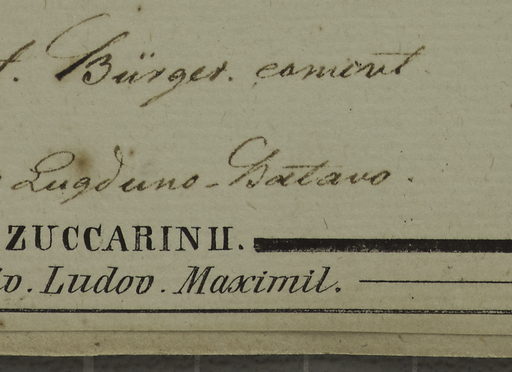 t. Bürger. comunt
Lugduno-Batavo.
ZUCCARINII.
iv. Ludov. Maximil.